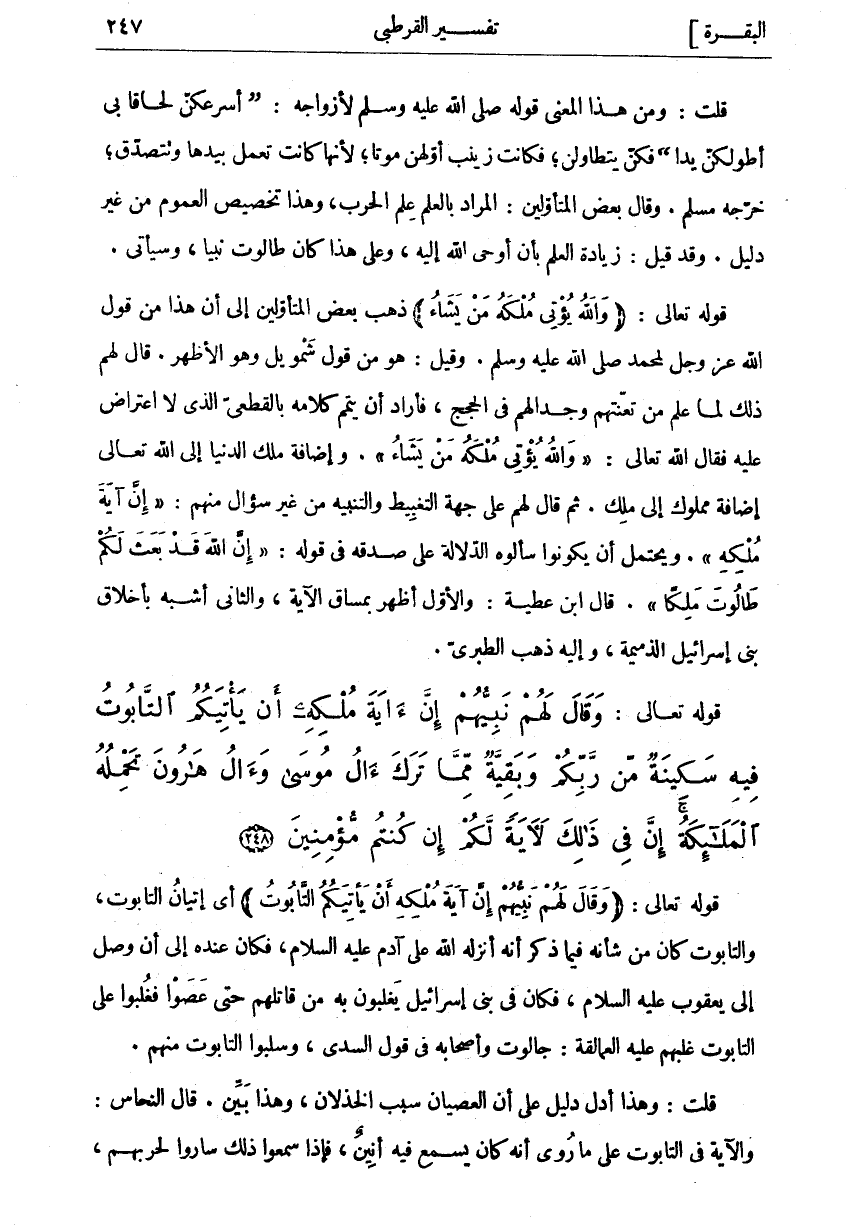 البقـــرة ]
تفســـير القرطبى
٢٤٧
قلت : ومن هــذا المعنى قوله صلى الله عليه وســلم لأزواجه : " أسرعكنّ لحــاقا بى
أطولكنّ يدا " فكنّ يتطاولن؛ فكانت زينب أوّلهن موتا؛ لأنها كانت تعمل بيدها وتتصدّق؛
خرّجه مسلم . وقال بعض المتأوّلين : المراد بالعلم عِلم الحرب، وهذا تخصيص العموم من غير
دليل . وقد قيل : زيادة العلم بأن أوحى الله إليه ، وعلى هذا كان طالوت نبيا ، وسيأتى .
قوله تعالى : ﴿ وَاللهُ يُؤْتِى مُلْكَهُ مَنْ يَشَاءُ ﴾ ذهب بعض المتأوّلين إلى أن هذا من قول
الله عز وجل لمحمد صلى الله عليه وسلم . وقيل : هو من قول شَمْويل وهو الأظهر . قال لهم
ذلك لمــا علم من تعنّتهم وجــدالهم فى الحجج ، فأراد أن يتم كلامه بالقطعىّ الذى لا اعتراض
عليه فقال الله تعالى : « وَاللهُ يُؤْتِى مُلْكَهُ مَنْ يَشَاءُ » . وإضافة ملك الدنيا إلى الله تعــالى
إضافة مملوك إلى ملِك . ثم قال لهم على جهة التغبِيط والتنبيه من غير سؤال منهم : « إِنَّ آيَةَ
مُلْكِهِ » . ويحتمل أن يكونوا سألوه الدّلالة على صــدقه فى قوله : « إِنَّ اللهَ قَــدْ بَعَثَ لَكُمْ
طَالُوتَ مَلِكًا » . قال ابن عطيــة : والأوّل أظهر بمساق الآية ، والثانى أشــبه بأخلاق
بنى إسرائيل الذميمة ، وإليه ذهب الطبرىّ .
قوله تعــالى : وَقَالَ لَهُمْ نَبِيُّهُمْ إِنَّ ءَايَةَ مُلْكِهِۦٓ أَن يَأْتِيَكُمُ ٱلتَّابُوتُ
فِيهِ سَكِينَةٌ مِّن رَّبِّكُمْ وَبَقِيَّةٌ مِّمَّا تَرَكَ ءَالُ مُوسَىٰ وَءَالُ هَـٰرُونَ تَحْمِلُهُ
ٱلْمَلَـٰٓئِكَةُ ۚ إِنَّ فِى ذَٰلِكَ لَآيَةً لَّكُمْ إِن كُنتُم مُّؤْمِنِينَ ﴿٢٤٨﴾
قوله تعالى : ﴿ وَقَالَ لَهُمْ نَبِيُّهُمْ إِنَّ آيَةَ مُلْكِهِ أَنْ يَأْتِيَكُمُ التَّابُوتُ ﴾ أى إتيانُ التابوت ،
والتابوت كان من شأنه فيما ذكر أنه أنزله الله على آدم عليه السلام، فكان عنده إلى أن وصل
إلى يعقوب عليه السلام ، فكان فى بنى إسرائيل يَغلبون به من قاتلهم حتى عَصَوْا فغُلبوا على
التابوت غلبهم عليه العمالقة : جالوت وأصحابه فى قول السدى ، وسلبوا التابوت منهم .
قلت : وهذا أدل دليل على أن العصيان سبب الخذلان ، وهذا بَيِّن . قال النحاس :
والآية فى التابوت على ما رُوى أنه كان يســمع فيه أنِينٌ ، فإذا سمعوا ذلك ساروا لحربهــم ،